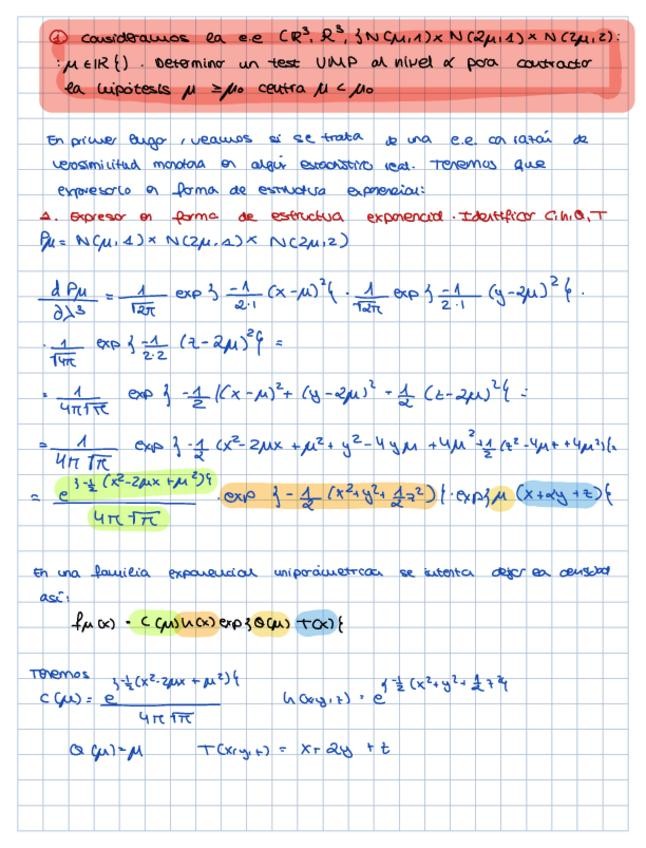 ① Consideramos la e.e (ℝ³, ℛ³, {N(μ,1) × N(2μ,1) × N(2μ,2):
: μ ∈ ℝ{). Determino un test UMP al nivel α para contractor
la hipótesis μ ≥ μ₀ contra μ < μ₀
En primer lugar, veamos si se trata de una e.e. con razón de
verosimilitud monótona en algún estadístico real. Tenemos que
expresarlo en forma de estructura exponencial:
1. Expresar en forma de estructura exponencial. Identificar C, h, Q, T
Pμ = N(μ,1) × N(2μ,1) × N(2μ,2)
dPμ/∂λ³ = 1/√2π exp{-1/2·1 (x-μ)²{ · 1/√2π exp{-1/2·1 (y-2μ)²{ ·
· 1/√4π exp{-1/2·2 (z-2μ)²{ =
= 1/4π√π exp{-1/2 ((x-μ)² + (y-2μ)² - 1/2 (z-2μ)²{ =
= 1/4π√π exp{-1/2 (x²-2μx+μ²+y²-4yμ+4μ²+1/2 (z²-4μz+4μ²){=
= e^{-1/2 (x²-2μx+μ²){ / 4π√π · exp{-1/2 (x²+y²+1/2 z²){ · exp{μ (x+2y+z){
En una familia exponencial uniparamétrica se intenta dejar la densidad
así:
fμ(x) = C(μ)h(x) exp{Q(μ) T(x){
Tenemos
C(μ) = e^{-1/2(x²-2μx+μ²){ / 4π√π h(x,y,z) = e^{-1/2 (x²+y²+1/2 z²{
Q(μ)=μ T(x,y,z) = x+2y+z